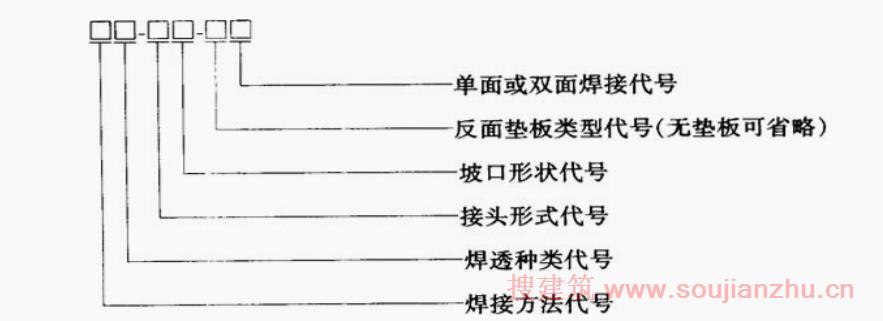 □□-□□-□□
单面或双面焊接代号
反面垫板类型代号(无垫板可省略)
坡口形状代号
接头形式代号
焊透种类代号
焊接方法代号
搜建筑 www.soujianzhu.cn